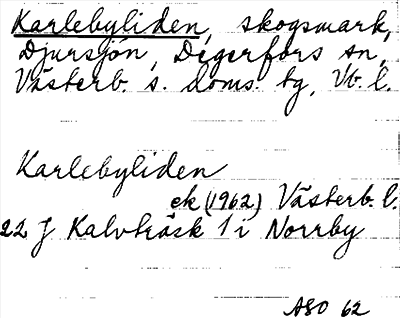 Karlebyliden, skogsmark,
Djursjön, Degerfors sn,
Västerb. s. doms. tg, Vb. l.
Karlebyliden
ek (1962) Västerb. l.
22 J Kalvträsk 1 i Norrby
ASO 62